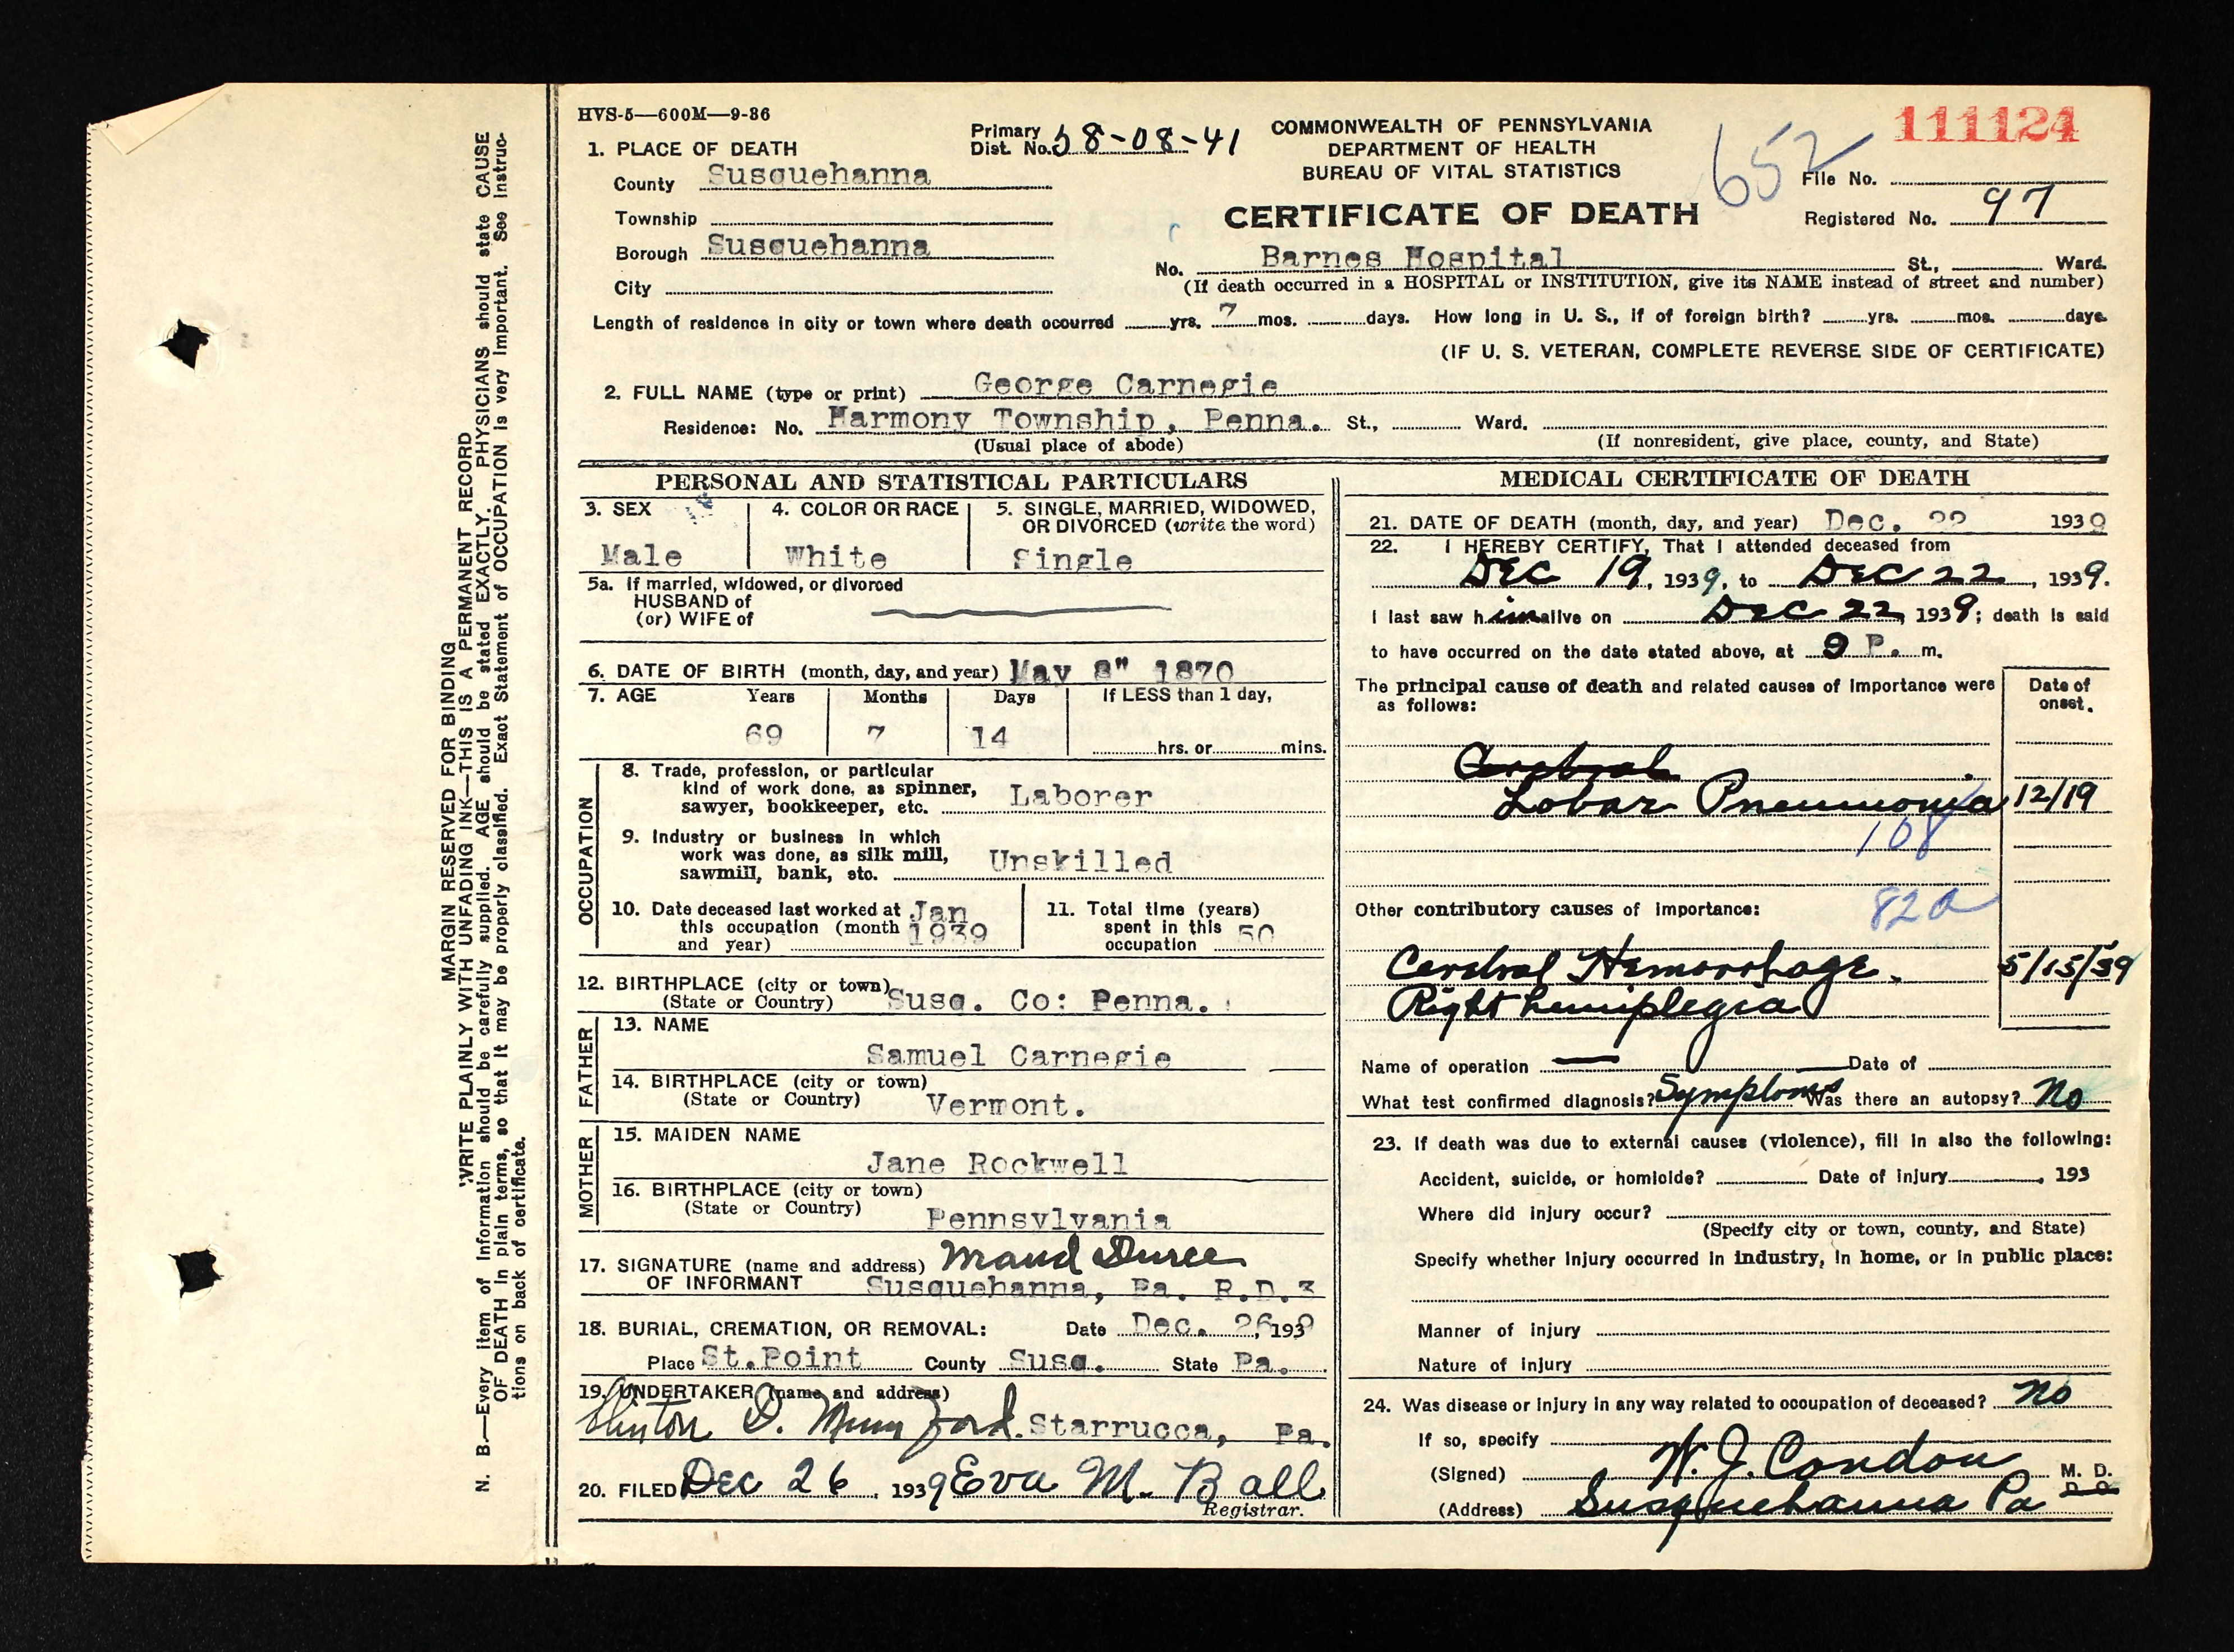 HVS-5—600M—9-36
Primary Dist. No. 58-08-41
COMMONWEALTH OF PENNSYLVANIA
DEPARTMENT OF HEALTH
BUREAU OF VITAL STATISTICS
CERTIFICATE OF DEATH
652
111124
File No.
Registered No. 97
1. PLACE OF DEATH
County Susquehanna
Township
Borough Susquehanna
City
No. Barnes Hospital St., Ward.
(If death occurred in a HOSPITAL or INSTITUTION, give its NAME instead of street and number)
Length of residence in city or town where death occurred yrs. 7 mos. days. How long in U. S., if of foreign birth? yrs. mos. days.
(IF U. S. VETERAN, COMPLETE REVERSE SIDE OF CERTIFICATE)
2. FULL NAME (type or print) George Carnegie
Residence: No. Harmony Township, Penna. St., Ward.
(Usual place of abode) (If nonresident, give place, county, and State)
PERSONAL AND STATISTICAL PARTICULARS
3. SEX 4. COLOR OR RACE 5. SINGLE, MARRIED, WIDOWED,
OR DIVORCED (write the word)
Male White Single
5a. If married, widowed, or divorced
HUSBAND of
(or) WIFE of
6. DATE OF BIRTH (month, day, and year) May 8" 1870
7. AGE Years Months Days If LESS than 1 day,
69 7 14 hrs. or mins.
OCCUPATION
8. Trade, profession, or particular
kind of work done, as spinner,
sawyer, bookkeeper, etc. Laborer
9. Industry or business in which
work was done, as silk mill,
sawmill, bank, etc. Unskilled
10. Date deceased last worked at
this occupation (month
and year) Jan 1939
11. Total time (years)
spent in this
occupation 50
12. BIRTHPLACE (city or town)
(State or Country) Susq. Co: Penna.
FATHER
13. NAME
Samuel Carnegie
14. BIRTHPLACE (city or town)
(State or Country) Vermont.
MOTHER
15. MAIDEN NAME
Jane Rockwell
16. BIRTHPLACE (city or town)
(State or Country) Pennsylvania
17. SIGNATURE (name and address) Maud
OF INFORMANT Susquehanna, Pa. R.D.3
18. BURIAL, CREMATION, OR REMOVAL: Date Dec. 26, 1939
Place St.Point County Susq. State Pa.
19. UNDERTAKER (name and address)
Clinton D. Mumford. Starrucca, Pa.
20. FILED Dec 26, 1939 Eva M. Ball
Registrar.
MEDICAL CERTIFICATE OF DEATH
21. DATE OF DEATH (month, day, and year) Dec. 22 1939
22. I HEREBY CERTIFY, That I attended deceased from
DEC 19, 1939, to DEC 22, 1939.
I last saw him alive on DEC 22, 1939; death is said
to have occurred on the date stated above, at 9 P. m.
The principal cause of death and related causes of importance were
as follows:
Date of
onset.
Cerebral
Lobar Pneumonia 12/19
108
82a
Other contributory causes of importance:
Cerebral Hemorrhage. 5/15/39
Right hemiplegia
Name of operation — Date of
What test confirmed diagnosis? Symptoms Was there an autopsy? No
23. If death was due to external causes (violence), fill in also the following:
Accident, suicide, or homicide? Date of injury , 193
Where did injury occur?
(Specify city or town, county, and State)
Specify whether injury occurred in industry, in home, or in public place:
Manner of injury
Nature of injury
24. Was disease or injury in any way related to occupation of deceased? No
If so, specify
(Signed) W. J. Condon M. D.
(Address) Susquehanna Pa
MARGIN RESERVED FOR BINDING
WRITE PLAINLY WITH UNFADING INK—THIS IS A PERMANENT RECORD
N. B.—Every item of information should be carefully supplied. AGE should be stated EXACTLY. PHYSICIANS should state CAUSE
OF DEATH in plain terms, so that it may be properly classified. Exact Statement of OCCUPATION is very important. See instruc-
tions on back of certificate.